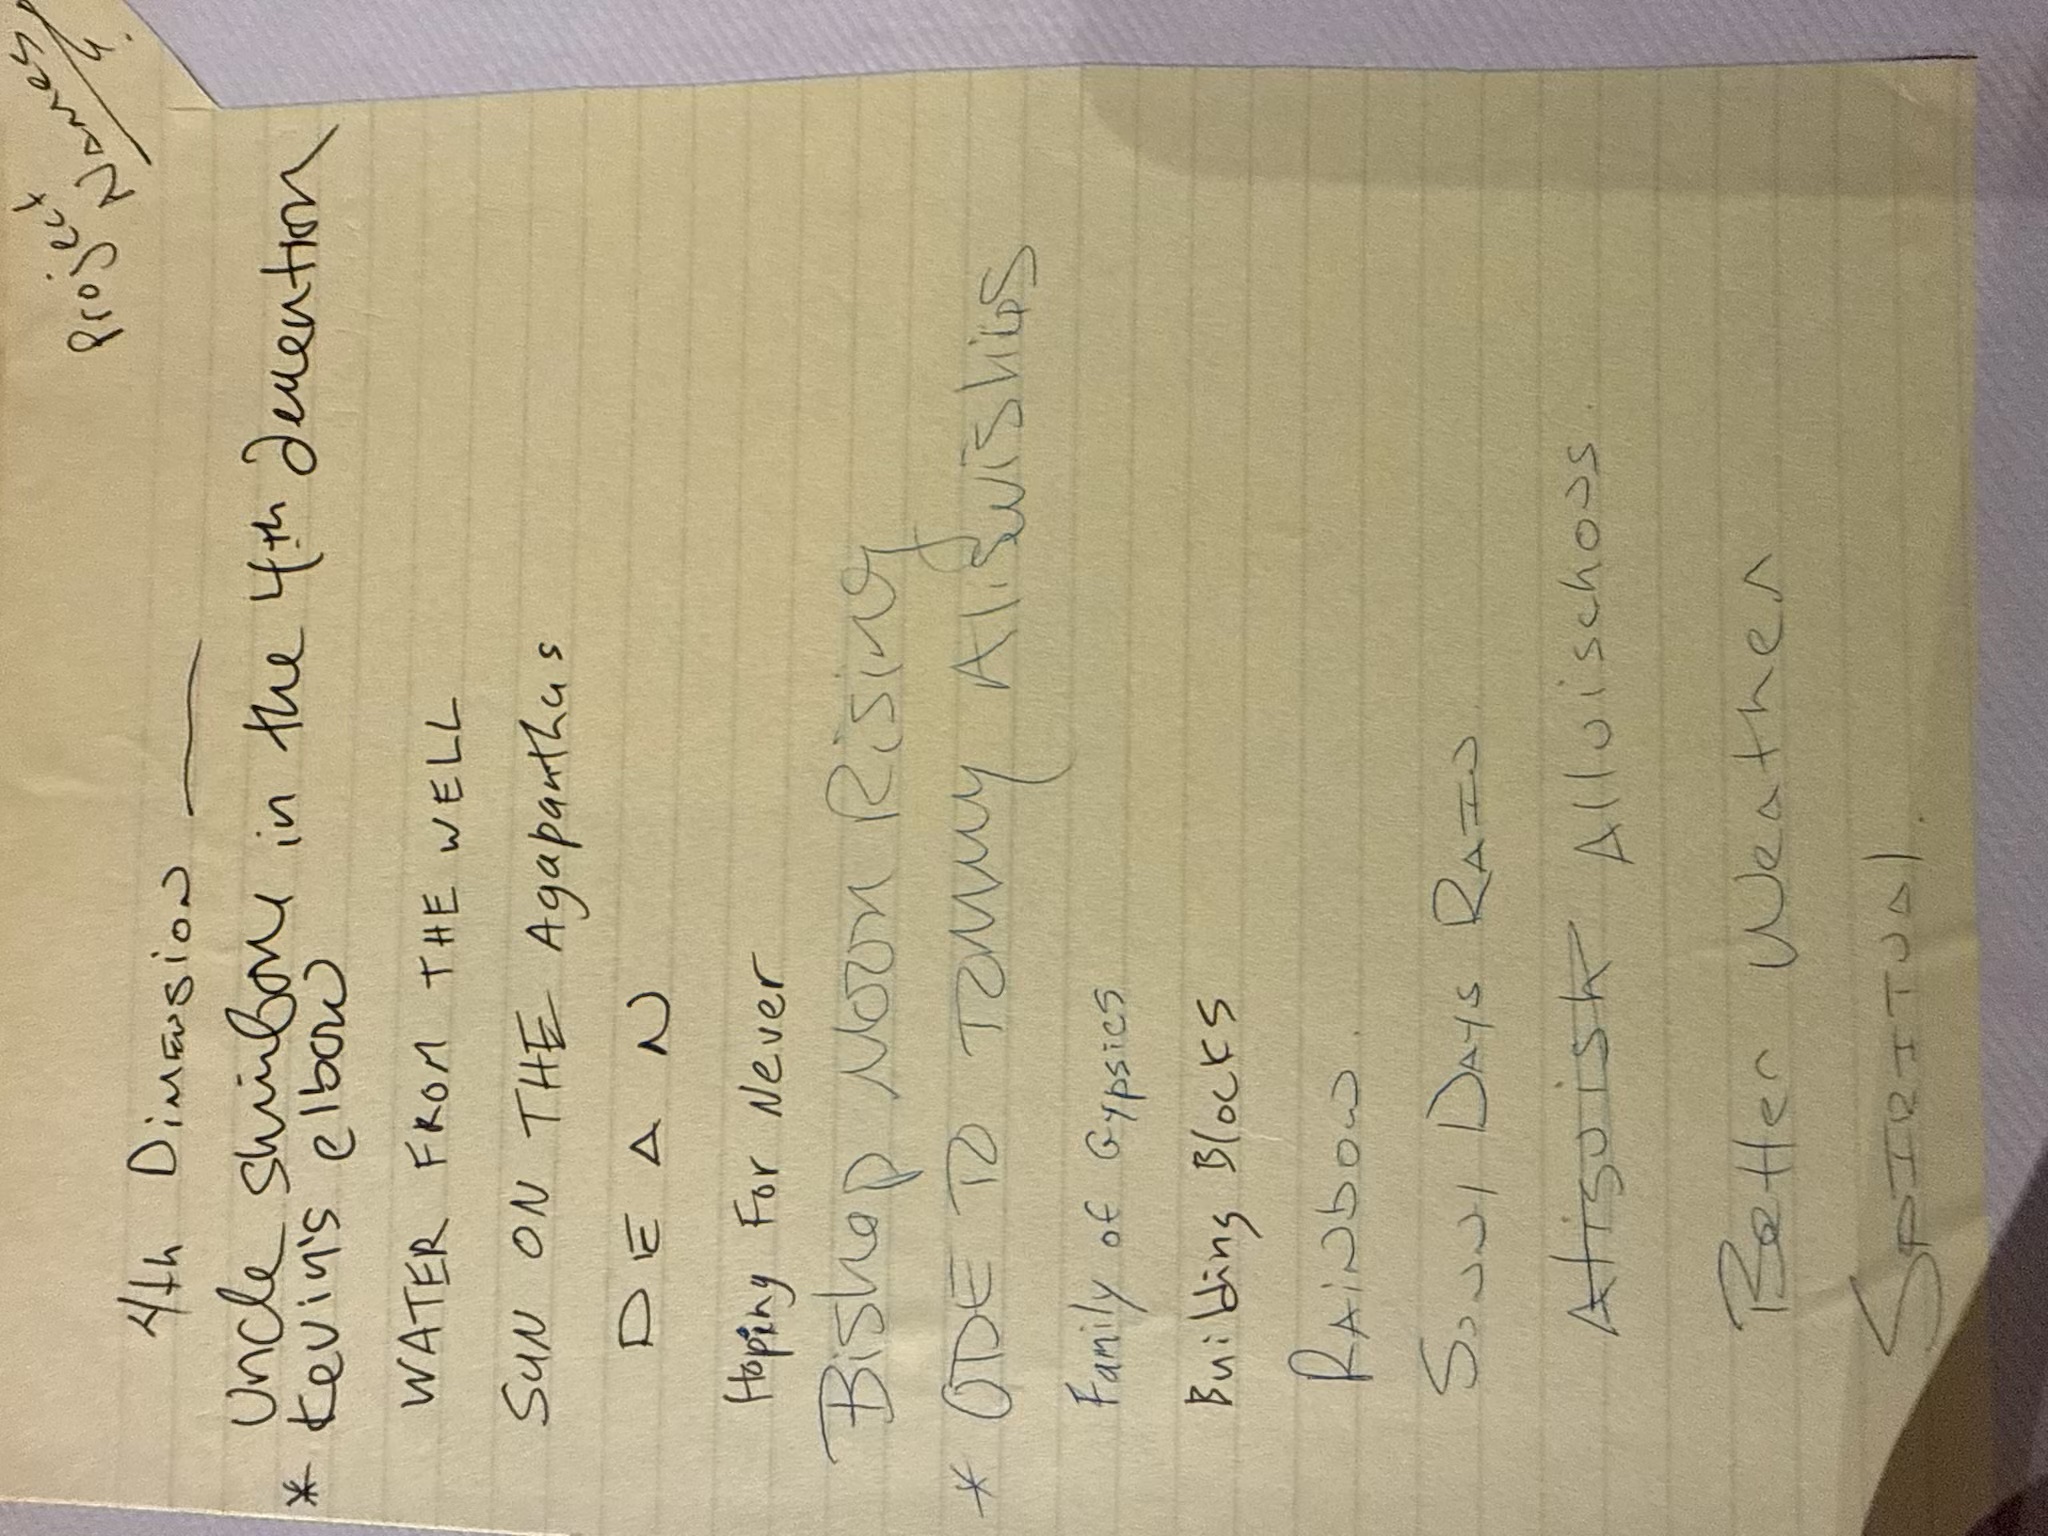 project
Names
4th Dimension —
Uncle Shinbone in the 4th demention
* Kevin's elbow
WATER FROM THE WELL
SUN ON THE Agapanthus
DEAN
Hoping For Never
Bishop Moon Rising
* ODE TO Tommy
Family of Gypsies
Building Blocks
RAINbow.
Days RAIN
Alluischous.
Better Weather
SPIRITUAl.